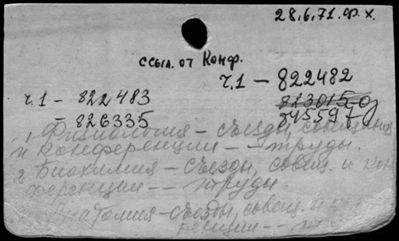 28.6.71. ор. х.
ссыл. от Конф.
ч.1 — 822482
ч.1 — 822483
823015-0
— 826335
84559
1. Физиология — съезды, совещания
и конференции — труды.
2. Биохимия — съезды, совещ. и кон
ференции — труды.
Анатомия — съезды, совещ. и кон
ренции —